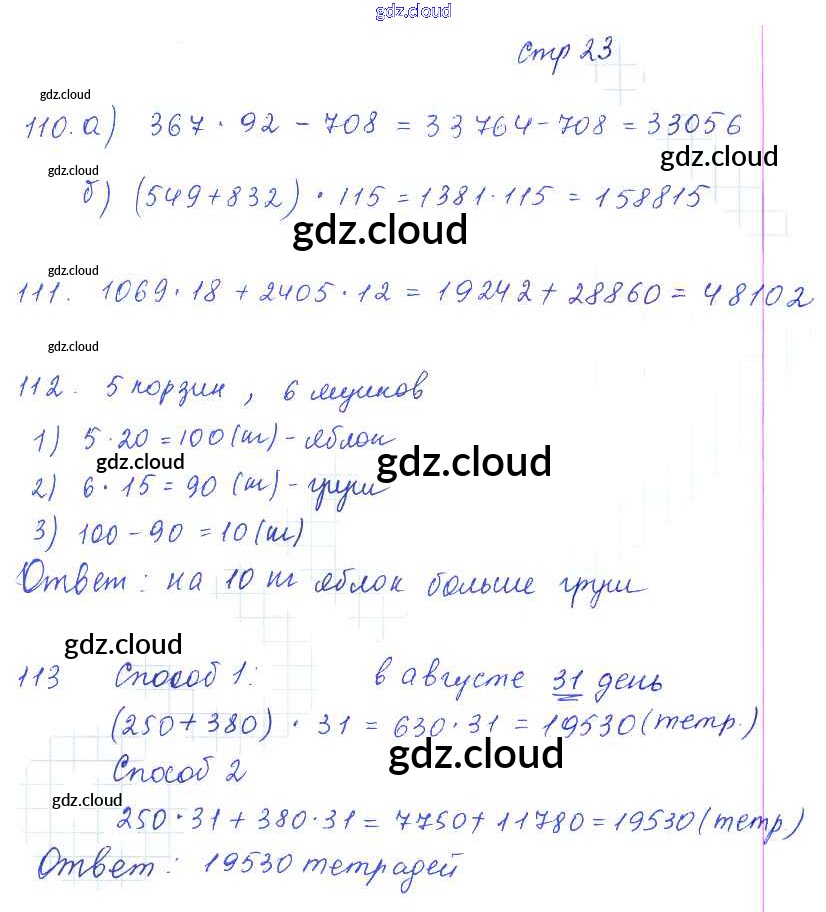 gdz.cloud
стр 23
gdz.cloud
110. а) 367 · 92 - 708 = 33764 - 708 = 33056
gdz.cloud
gdz.cloud
б) (549 + 832) · 115 = 1381 · 115 = 158815
gdz.cloud
gdz.cloud
111. 1069 · 18 + 2405 · 12 = 19242 + 28860 = 48102
gdz.cloud
112. 5 корзин, 6 ящиков
1) 5 · 20 = 100 (кг) - яблок
gdz.cloud gdz.cloud
2) 6 · 15 = 90 (кг) - груш
3) 100 - 90 = 10 (кг)
Ответ: на 10 кг яблок больше груш
gdz.cloud
113 Способ 1: в августе 31 день
(250 + 380) · 31 = 630 · 31 = 19530 (тетр.)
gdz.cloud
Способ 2
gdz.cloud
250 · 31 + 380 · 31 = 7750 + 11780 = 19530 (тетр)
Ответ: 19530 тетрадей